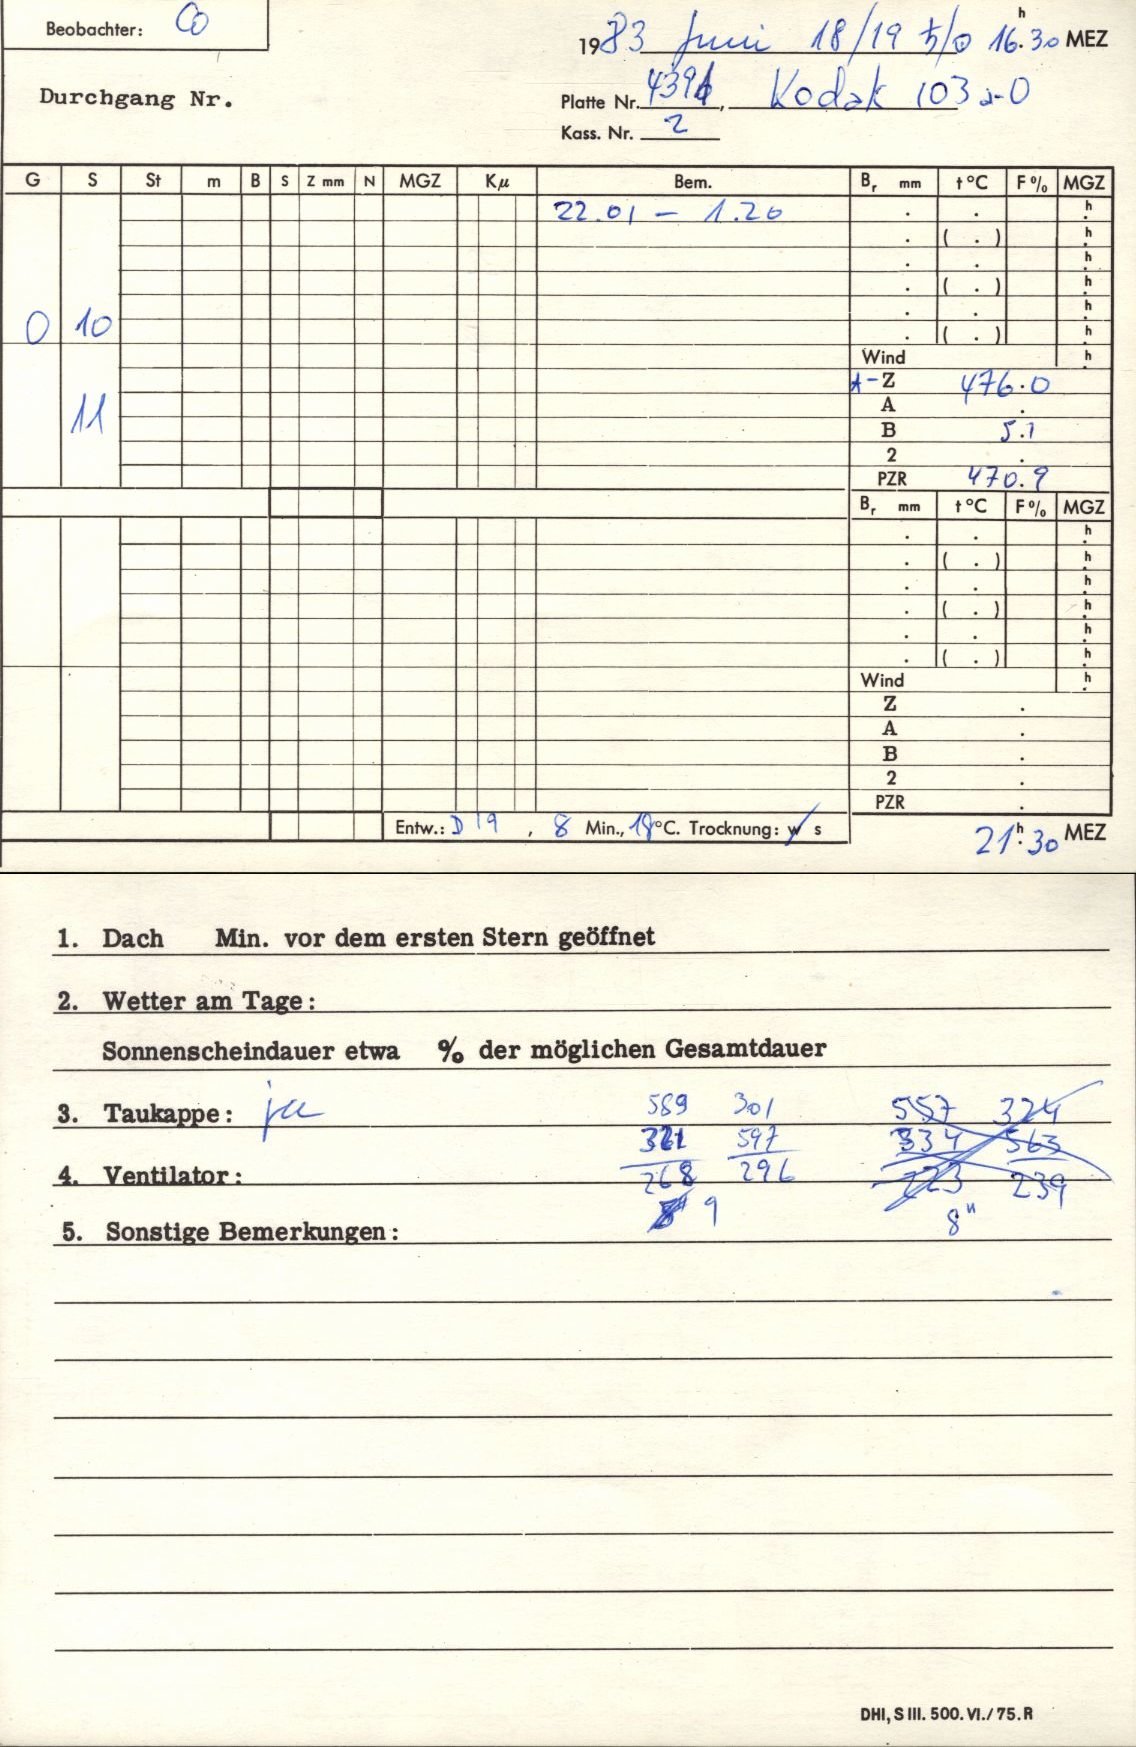 Beobachter: Co
1983 Juni 18/19 ♄/☉ 16.30 h MEZ
Durchgang Nr.
Platte Nr. 4391, Kodak 103 a-O
Kass. Nr. 2
G S St m B S Z mm N MGZ Kμ Bem. Br mm t °C F % MGZ
22.01 – 1.20 . . h
. ( . ) h
. . h
. ( . ) h
. . h
0 10 . ( . ) h
Wind h
A-Z 476.0
11 A .
B 5.1
2 .
PZR 470.9
Br mm t °C F % MGZ
. . h
. ( . ) h
. . h
. ( . ) h
. . h
. ( . ) h
Wind h
Z .
A .
B .
2 .
PZR .
Entw.: D 19, 8 Min., 18 °C. Trocknung: w s
21 h 30 MEZ
1. Dach Min. vor dem ersten Stern geöffnet
2. Wetter am Tage:
Sonnenscheindauer etwa % der möglichen Gesamtdauer
3. Taukappe: ja 589 301 557 324
321 597 334 563
4. Ventilator: 268 296 223 239
9 8"
5. Sonstige Bemerkungen:
DHI, S III. 500. VI./75. R